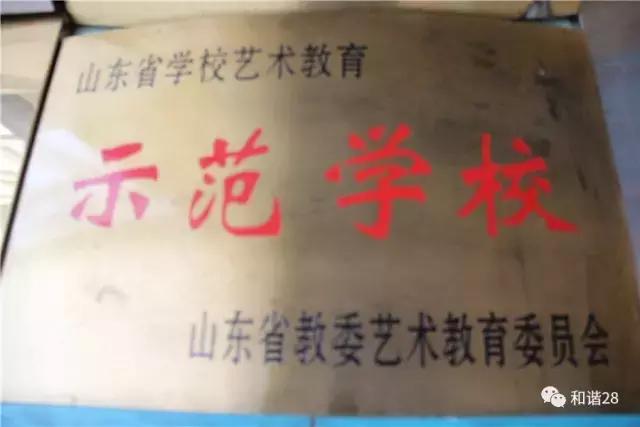 山东省学校艺术教育
示范学校
山东省教委艺术教育委员会
和谐28